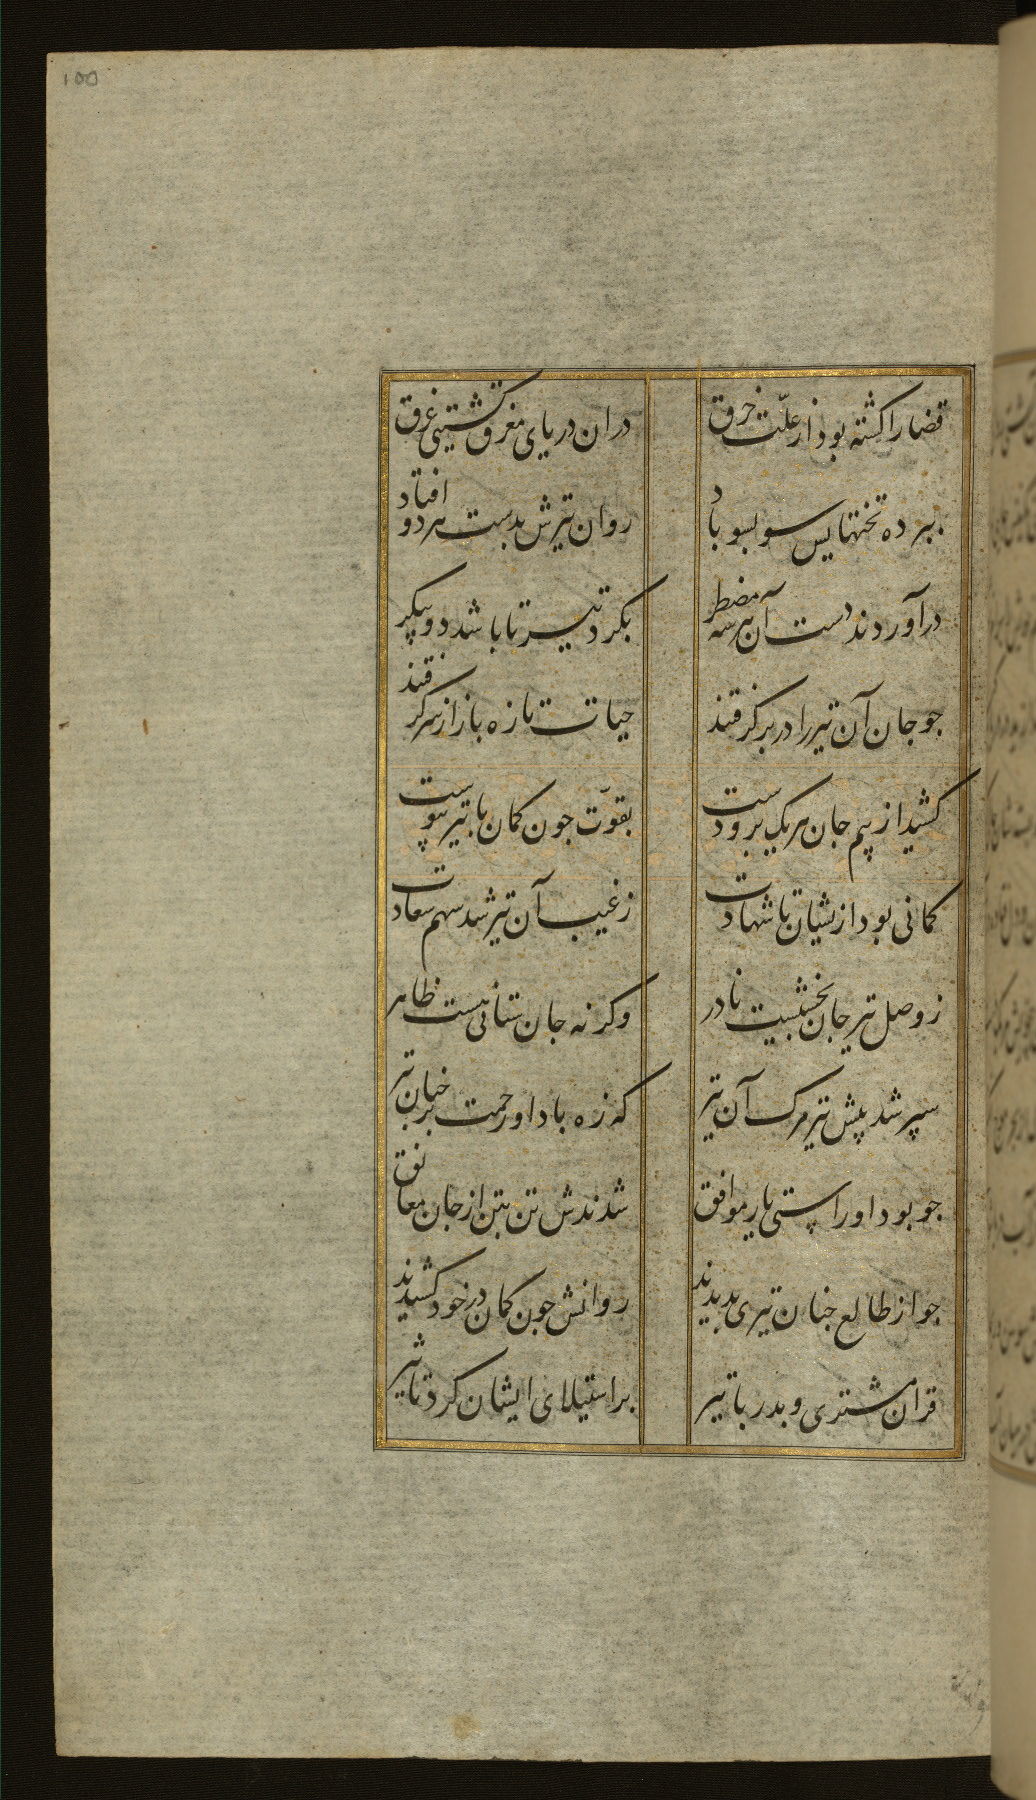 ۱۵۵
قضا را کشته بود از علّت خرق
دران دریای مغرق کشتیی غرق
ببرده تختهایس سو بسو باد
روان تیرش بدست هر دو افتاد
درآوردند دست آن هر سه مضطر
بکرد تیر تا باشد دو پیکر
جو جان آن تیر را در بر کرفتند
حیات تازه باز از سر کرفتند
کشید از بیم جان هر یک برو دست
بقوّت جون کمان با تیر پیوست
کمانی بود ازیشان تا شهادت
ز غیب آن تیر شد سهم سعادت
ز وصل تیر جان بخشیست نادر
وکر نه جان ستانی هست ظاهر
سپر شد پیش تیر مرک آن تیر
که زه باد اور حمت بر جنان تیر
جو بود او راستی یار موافق
شدندش تن بتن از جان معانق
جو از طالع جنان تیری بدیدند
روانش جون کمان در خود کشیدند
قران مشتری و بدر با تیر
بر استیلای ایشان کرد تاثیر